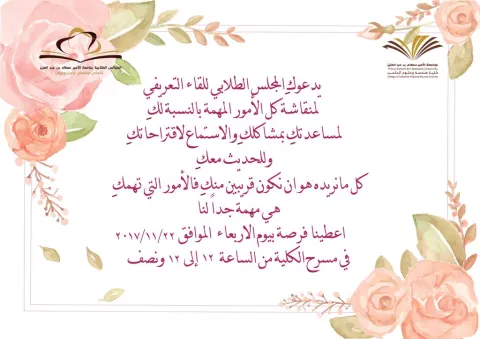 المجلس الطلابي بجامعة الأمير سطام بن عبد العزيز
جامعة الأمير سطام بن عبد العزيز
Prince Sattam Bin Abdulaziz University
كلية هندسة وعلوم الحاسب
College of Computer Engineering and Sciences
يدعوكِ المجلس الطلابي للقاء التعريفي
لمناقشة كل الأمور المهمة بالنسبة لكِ
لمساعدتكِ بمشاكلكِ والاستماع لاقتراحاتكِ
وللحديث معكِ
كل مانريده هو ان نكون قريبين منكِ فالأمور التي تهمكِ
هي مهمة جداً لنا
اعطينا فرصة بيوم الاربعاء الموافق ٢٠١٧/١١/٢٢
في مسرح الكلية من الساعة ١٢ إلى ١٢ ونصف